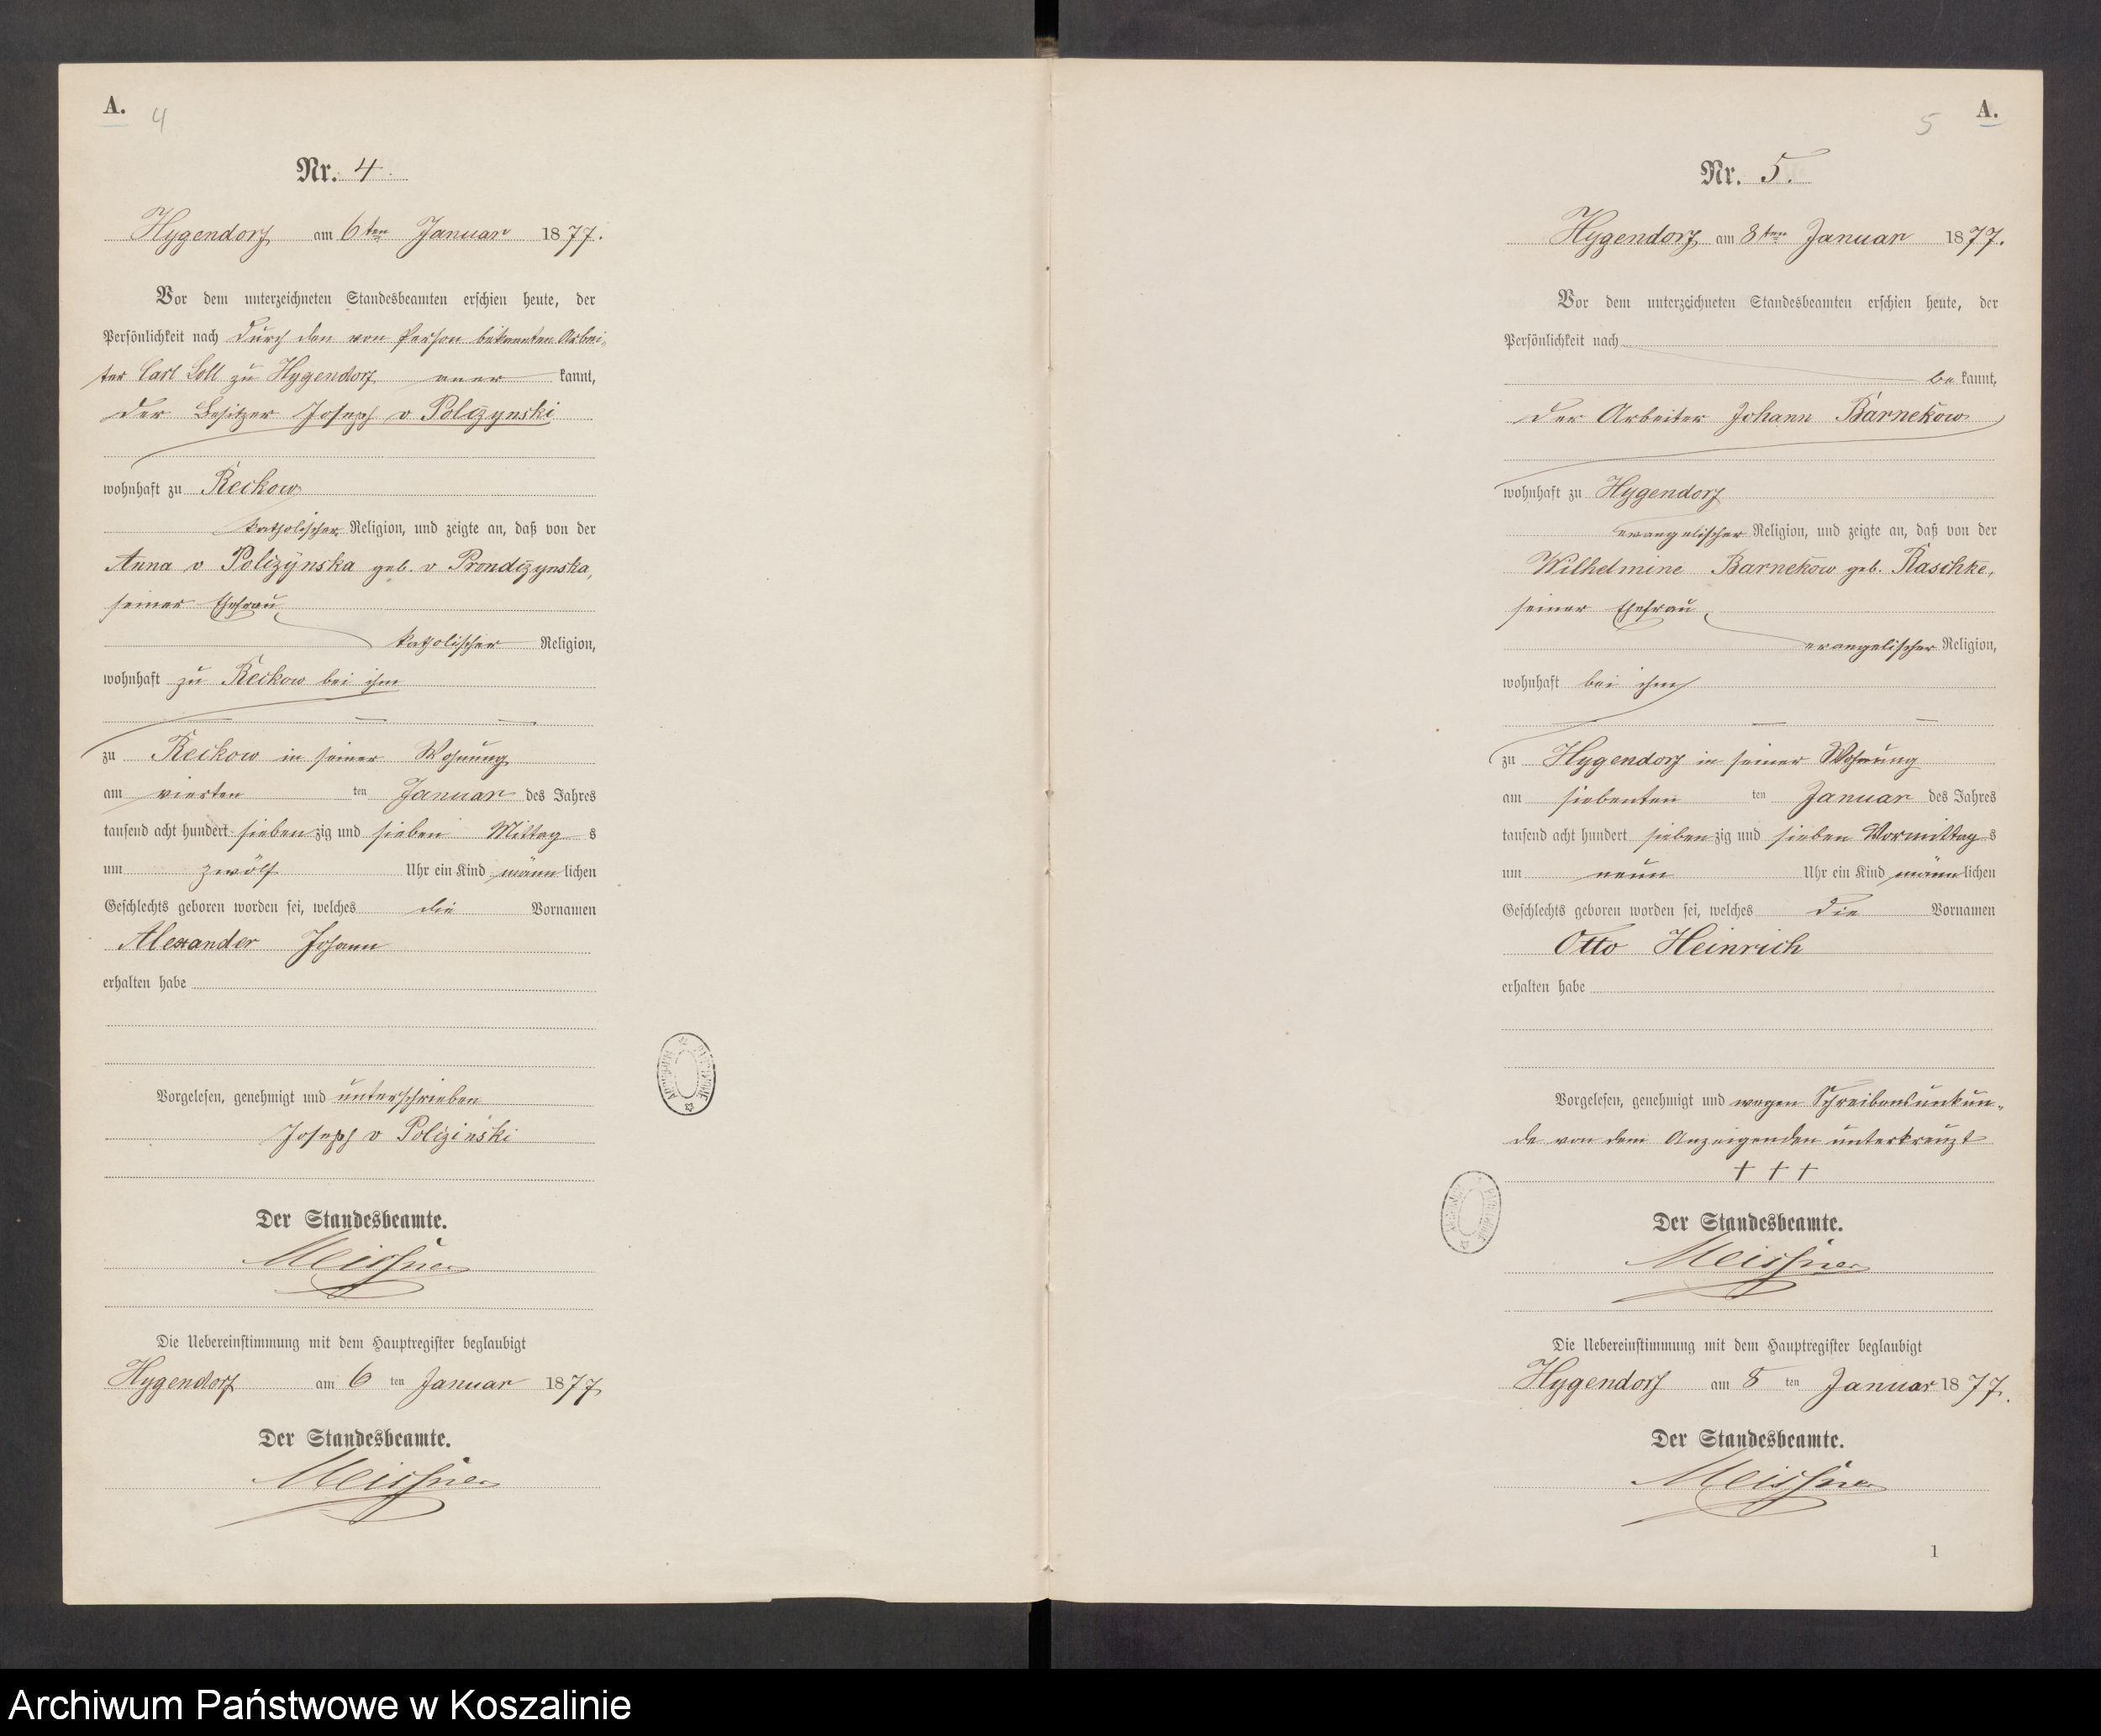 A.
4
Nr. 4.
Hygendorf am 6ten Januar 1877.
Vor dem unterzeichneten Standesbeamten erschien heute, der
Persönlichkeit nach durch den von Person bekannten Arbei-
ter Carl Loll zu Hygendorf aner kannt,
der Besitzer Joseph v Polczynski
wohnhaft zu Reckow
katholischer Religion, und zeigte an, daß von der
Anna v Polczynska geb. v Prondczynska,
seiner Ehefrau
katholischer Religion,
wohnhaft zu Reckow bei ihm
zu Reckow in seiner Wohnung
am vierten ten Januar des Jahres
tausend acht hundert sieben zig und sieben Mittag s
um zwölf Uhr ein Kind männ lichen
Geschlechts geboren worden sei, welches die Vornamen
Alexander Johann
erhalten habe
Vorgelesen, genehmigt und unterschrieben
Joseph v Polczinski
Der Standesbeamte.
Meissner
Die Uebereinstimmung mit dem Hauptregister beglaubigt
Hygendorf am 6 ten Januar 1877.
Der Standesbeamte.
Meissner
A.
5
Nr. 5.
Hygendorf am 8ten Januar 1877.
Vor dem unterzeichneten Standesbeamten erschien heute, der
Persönlichkeit nach
be kannt,
der Arbeiter Johann Barnekow
wohnhaft zu Hygendorf
evangelischer Religion, und zeigte an, daß von der
Wilhelmine Barnekow geb. Raschke,
seiner Ehefrau
evangelischer Religion,
wohnhaft bei ihm
zu Hygendorf in seiner Wohnung
am siebenten ten Januar des Jahres
tausend acht hundert sieben zig und sieben Vormittag s
um neun Uhr ein Kind männ lichen
Geschlechts geboren worden sei, welches die Vornamen
Otto Heinrich
erhalten habe
Vorgelesen, genehmigt und wegen Schreibensunkun-
de von dem Anzeigenden unterkreuzt
+ + +
Der Standesbeamte.
Meissner
Die Uebereinstimmung mit dem Hauptregister beglaubigt
Hygendorf am 8 ten Januar 1877.
Der Standesbeamte.
Meissner
1
Archiwum Państwowe w Koszalinie